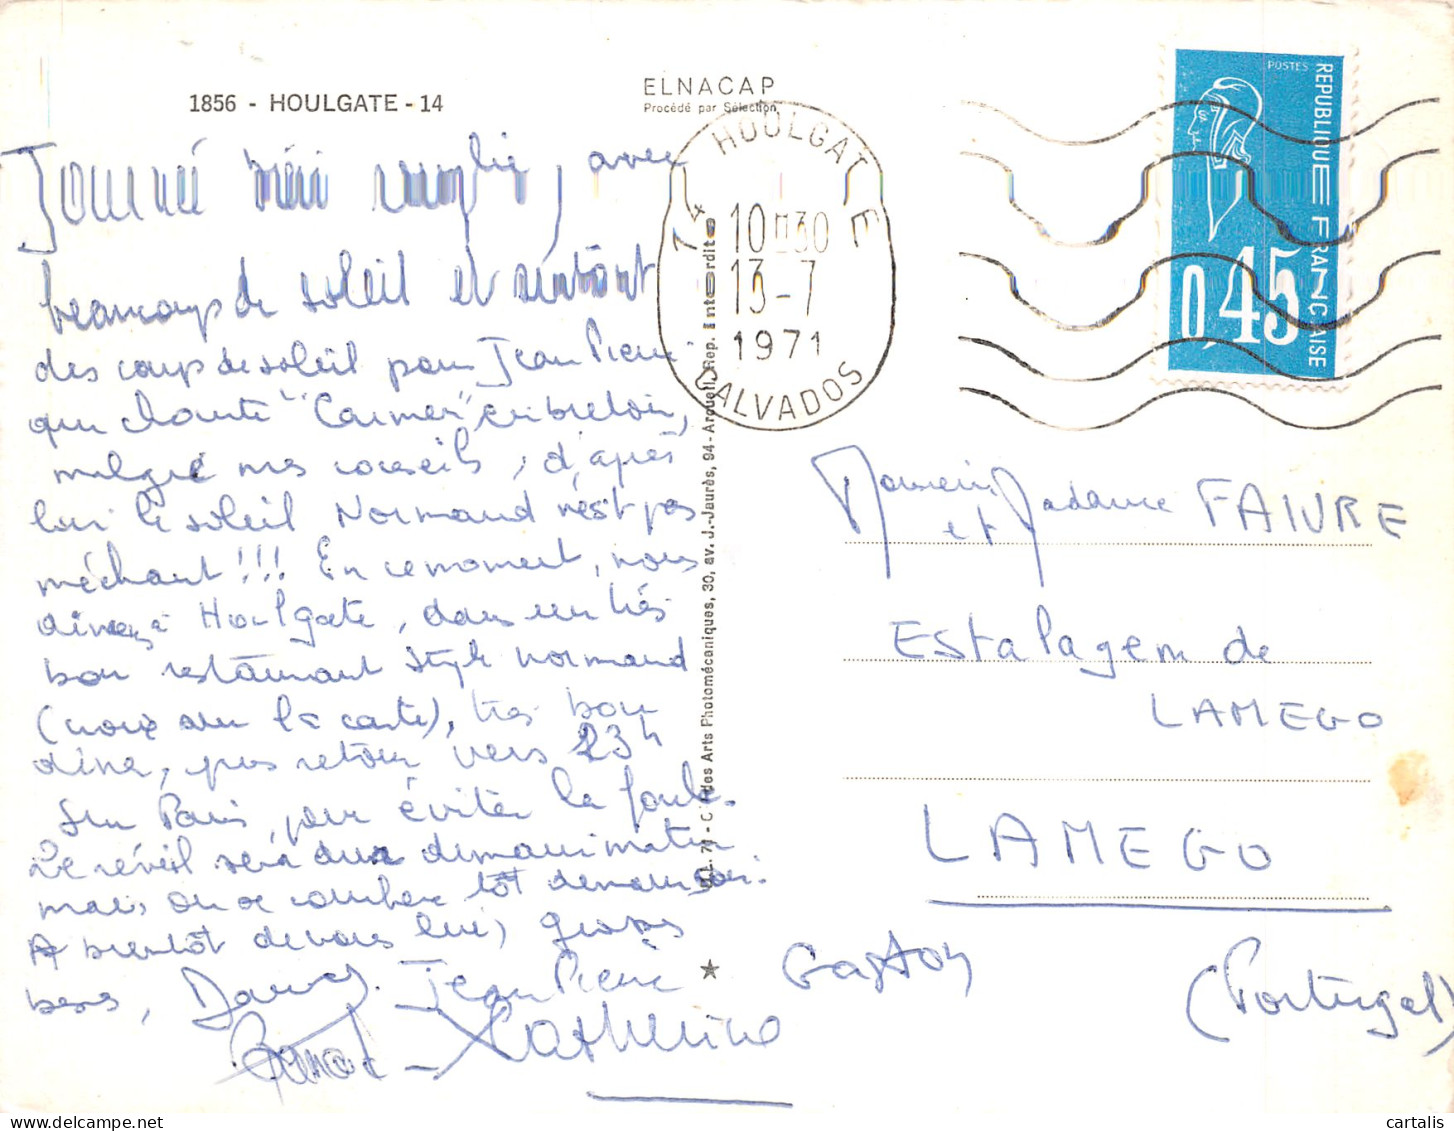 1856 - HOULGATE - 14
ELNACAP
Procédé par Sélection
Journée bien remplie, avec
beaucoup de soleil et surtout
des coups de soleil pour Jean Pierre
qui chante "Carmen"
malgré mes conseils, d'après
lui le soleil Normand n'est pas
méchant!!! En ce moment, nous
dinons à Houlgate, dans un très
bon restaurant style normand
(croix sur la carte), très bon
diner, puis retour vers 23h
sur Paris, pour éviter la foule.
Le réveil sera dur demain matin
mais on se couchera tôt demain soir.
A bientôt de vous lire, grosses
bises,
Jean Pierre
Catherine
Gaston
74 HOULGATE
10H30
13-7
1971
CALVADOS
POSTES
REPUBLIQUE FRANCAISE
0,45
Monsieur
et Madame FAIVRE
Estalagem de
LAMEGO
LAMEGO
(Portugal)
des Arts Photomécaniques, 30, av. J.-Jaurès, 94-Arcueil, Rep. Interdite
cartalis
delcampe.net